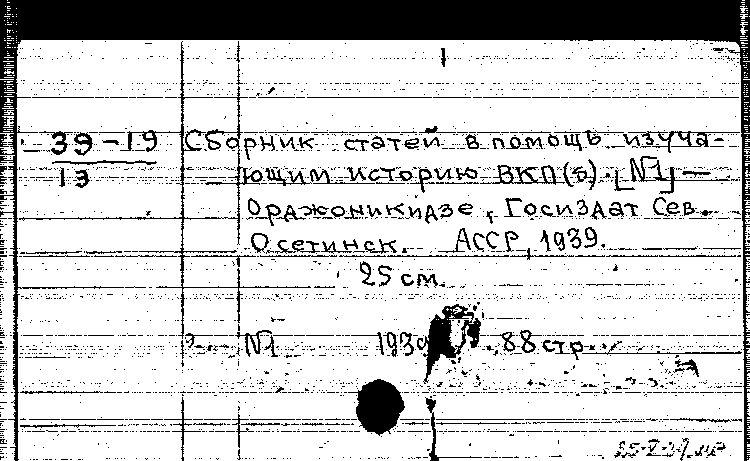 39-19 Сборник статей в помощь изуча-
13 ющим историю ВКП(б). [№1] —
Орджоникидзе, Госиздат Сев.
Осетинск. АССР, 1939.
25 см.
№1 1939 88 стр.